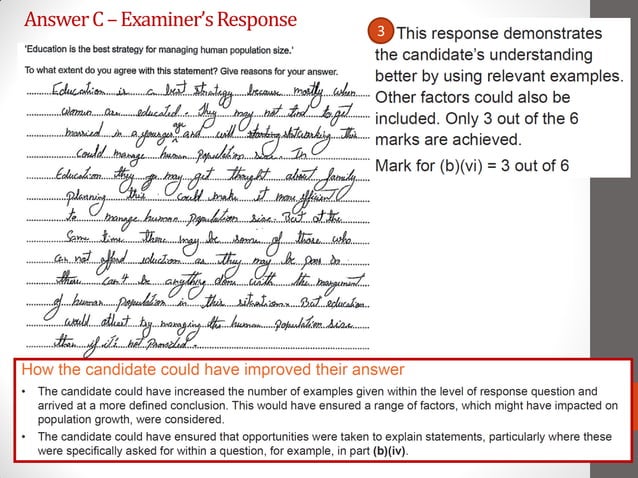 Answer C – Examiner's Response
'Education is the best strategy for managing human population size.'
To what extent do you agree with this statement? Give reasons for your answer.
Education is a best strategy because mostly when
women are educated. They may not tind to get
married in a younger age and will starting statworking this
could manage human population size. In
Education they go may get thought about family
planning this could make it more efficient
to manage human population size. But at the
same time there may be some of those who
can not afford eduction as they may be poor so
there can't be anything done with the mangment
of human population in this situation. But education
would atleat by managing the human population size
than if it's not provided.
3 This response demonstrates
the candidate's understanding
better by using relevant examples.
Other factors could also be
included. Only 3 out of the 6
marks are achieved.
Mark for (b)(vi) = 3 out of 6
How the candidate could have improved their answer
• The candidate could have increased the number of examples given within the level of response question and
arrived at a more defined conclusion. This would have ensured a range of factors, which might have impacted on
population growth, were considered.
• The candidate could have ensured that opportunities were taken to explain statements, particularly where these
were specifically asked for within a question, for example, in part (b)(iv).